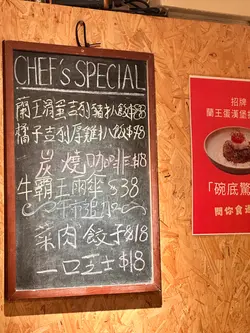 CHEF's SPECIAL
蘭王滑蛋吉列豬扒飯$98
橘子吉列厚雞扒飯$98
炭燒咖啡$18
牛霸王雨傘$38
午市追加
菜肉餃子$18
一口王士$18
招牌
蘭王蛋漢堡
「碗底驚
閣你食